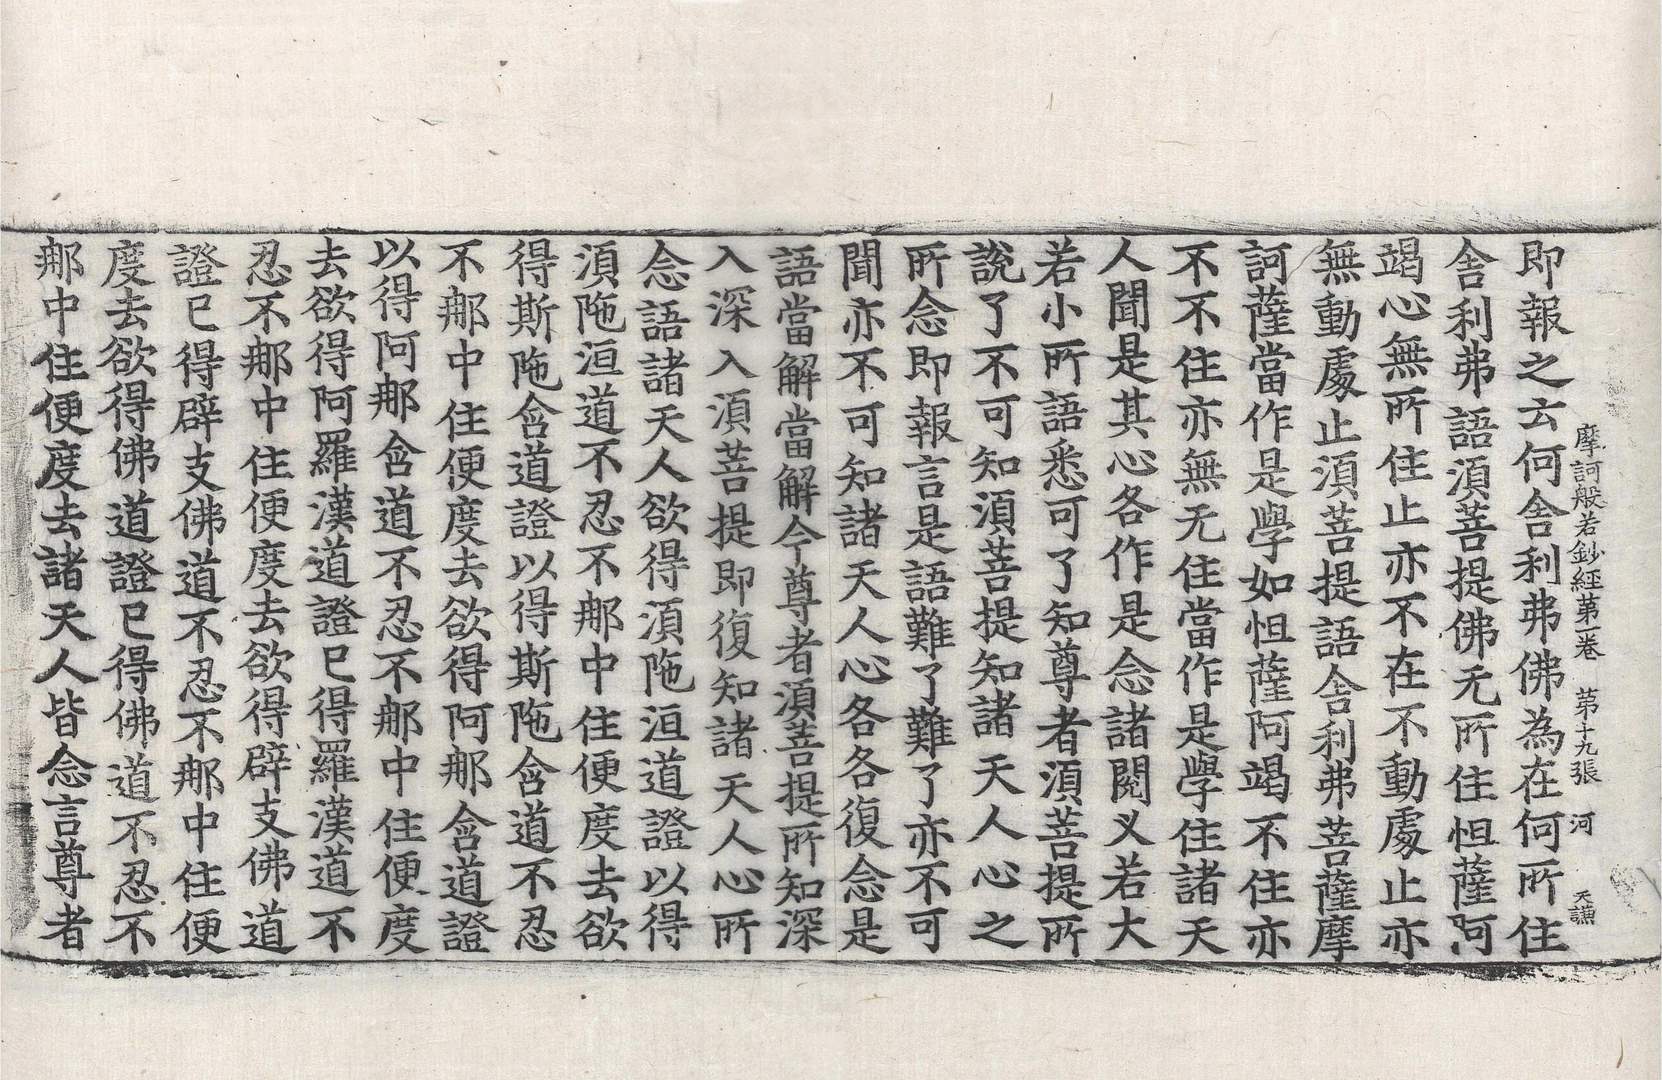 摩訶般若鈔經第一卷　第十九張　河　天謙
即報之云何舍利弗佛為在何所住
舍利弗語湏菩提佛无所住怛薩阿
竭心無所住止亦不在不動處止亦
無動處止湏菩提語舍利弗菩薩摩
訶薩當作是學如怛薩阿竭不住亦
不不住亦無无住當作是學住諸天
人聞是其心各作是念諸閱叉若大
若小所語悉可了知尊者湏菩提所
說了不可知湏菩提知諸天人心之
所念即報言是語難了難了亦不可
聞亦不可知諸天人心各各復念是
語當解當解今尊者湏菩提所知深
入深入湏菩提即復知諸天人心所
念語諸天人欲得湏陁洹道證以得
湏陁洹道不忍不那中住便度去欲
得斯陁含道證以得斯陁含道不忍
不那中住便度去欲得阿那含道證
以得阿那含道不忍不那中住便度
去欲得阿羅漢道證已得羅漢道不
忍不那中住便度去欲得辟支佛道
證已得辟支佛道不忍不那中住便
度去欲得佛道證已得佛道不忍不
那中住便度去諸天人皆念言尊者